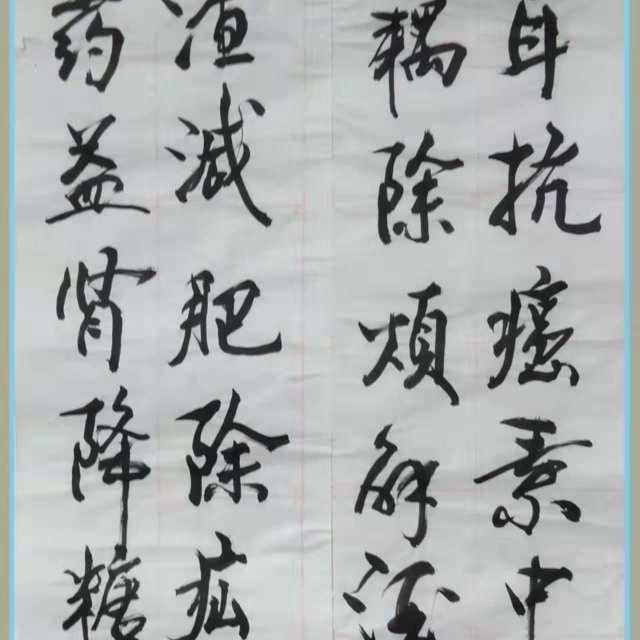 耳抗癌素中
耦除烦解
渣减肥除疝
药益肾降糖